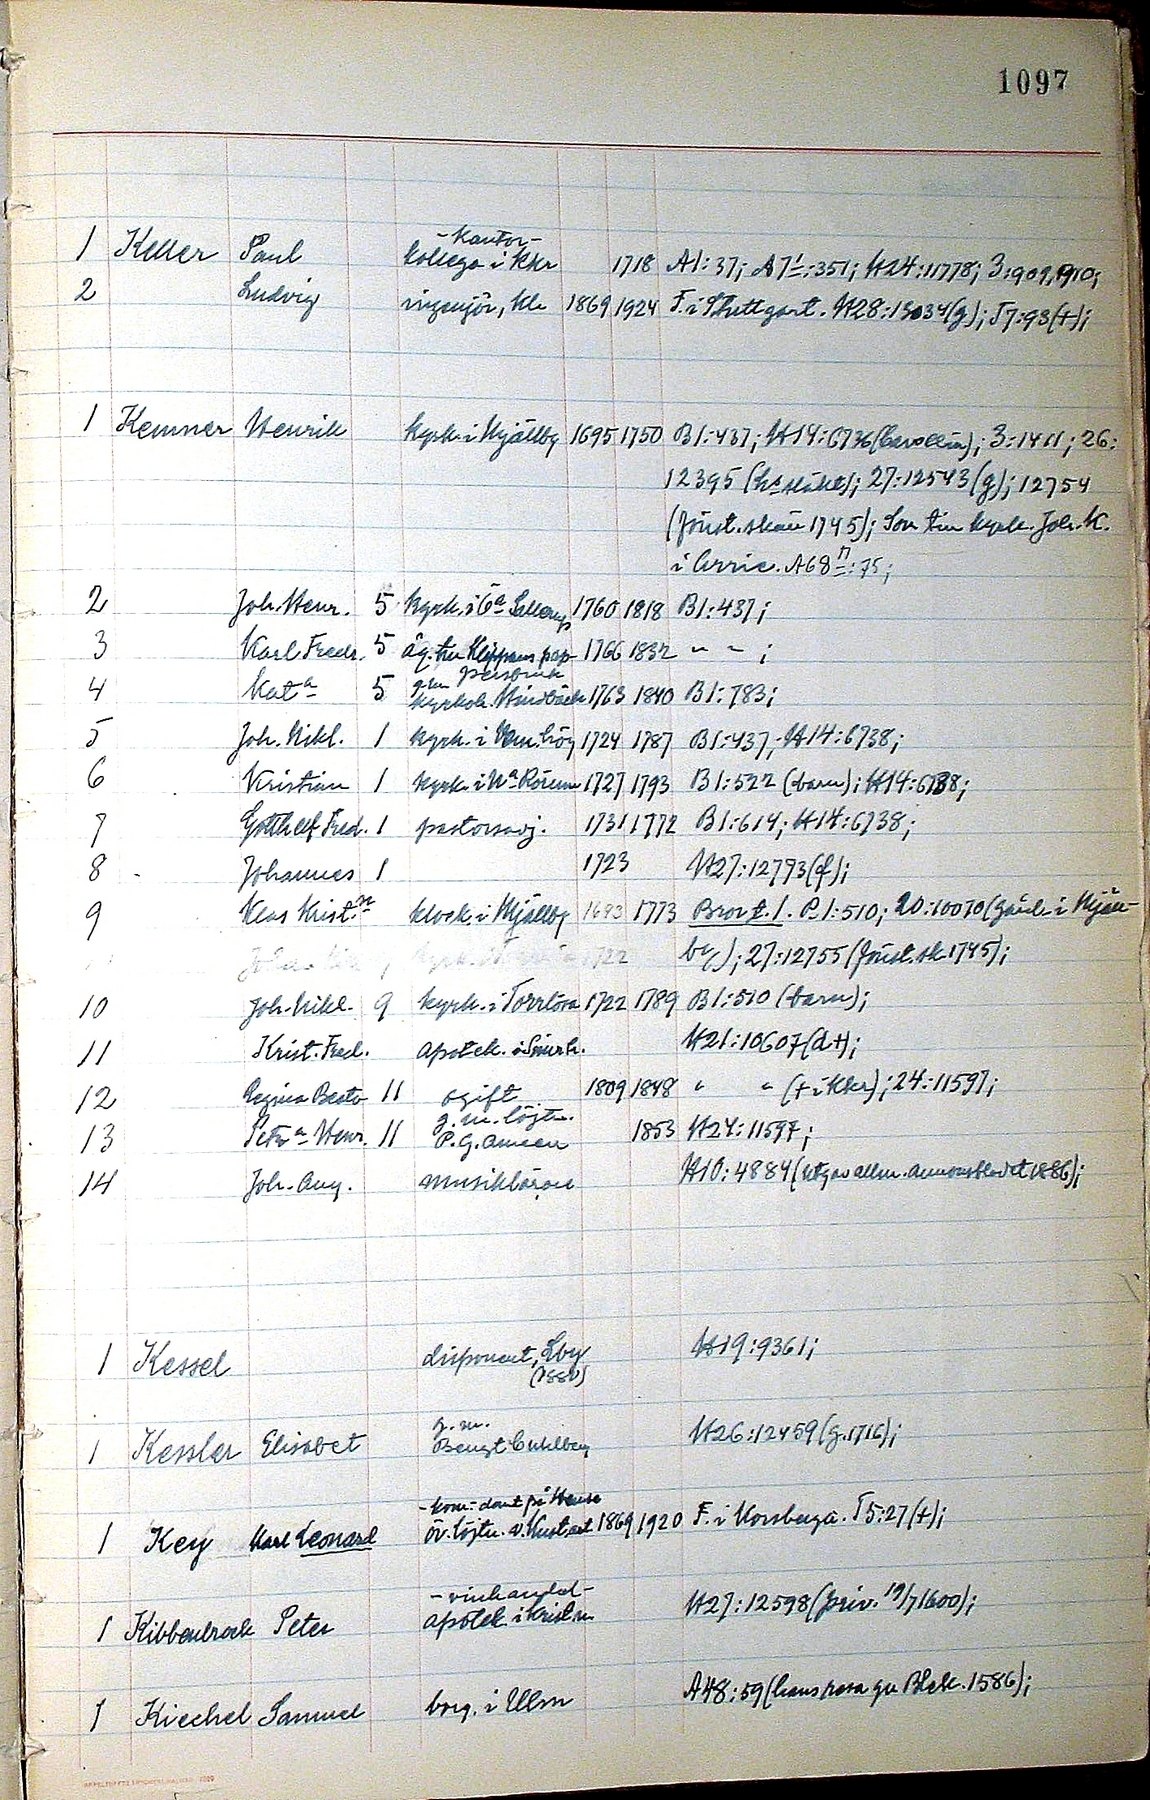 1097
1 Keller Paul - kantor - kollega i Khr 1718 A1:37; A7¹:351; H24:11778; 3:909,910;
2 Ludvig ingenjör, Khr 1869 1924 F. i Stuttgart. H28:13034(g); T7:93(+);
1 Kemner Henrik kyrk. i Mjällby 1695 1750 B1:437; H14:6736(Carollin); 3:1411; 26:
12395 (hs släkt); 27:12543(g); 12754
(Förit. skån 1745); Son t. kyrk. Joh. K.
i Arrie. A68ᴵᴵ:75;
2 Joh. Henr. 5 kyrk. i Öa Sallerup 1760 1818 B1:437;
3 Karl Fredr. 5 äg. t. Klippans pap- 1766 1832 " " ;
persbruk
4 Kata 5 g.m. kyrkoh. Hindbäck 1763 1840 B1:783;
5 Joh. Nikl. 1 kyrk. i Vemhög 1724 1787 B1:437; H14:6738;
6 Kristian 1 kyrk. i Na Rörum 1727 1793 B1:522 (barn); H14:6738;
7 Gotthelf Fred. 1 pastorsadj. 1731 1772 B1:614; H14:6738;
8 Johannes 1 1723 H27:12773(f);
9 Klas Krist.n klock. i Mjällby 1693 1773 Bror t. 1. P1:510; 20:10070(gård i Mjäll-
by); 27:12755 (Förit. sk 1745);
1722
10 Joh. Nikl. 9 kyrk. i Torrlösa 1722 1789 B1:510 (barn);
11 Krist. Fred. apotek. i Simrh. H21:10607(d+);
12 Regina Beata 11 ogift 1809 1848 " " (+ i Khr); 24:11597;
13 Petra Henr. 11 g.m. löjtn. P.G. Ameen 1853 H24:11597;
14 Joh. Aug. musiklärare H10:4884 (utgav allm. annonsbladet 1886);
1 Kessel disponent, Lby (1880) H19:9361;
1 Kessler Elisabet g.m. Bengt Cuhlberg H26:12459(g.1716);
1 Key Karl Leonard - kom-dant på öv. löjtn. v. Kustart 1869 1920 F. i Korsberga. T5:27(+);
1 Kibbenbrock Peter - vinhandel - apotek. i Kristn H27:12598 (priv. 19/7 1600);
1 Kiechel Samuel borg. i Ulm A48:59 (hans resa gm Blek. 1586);